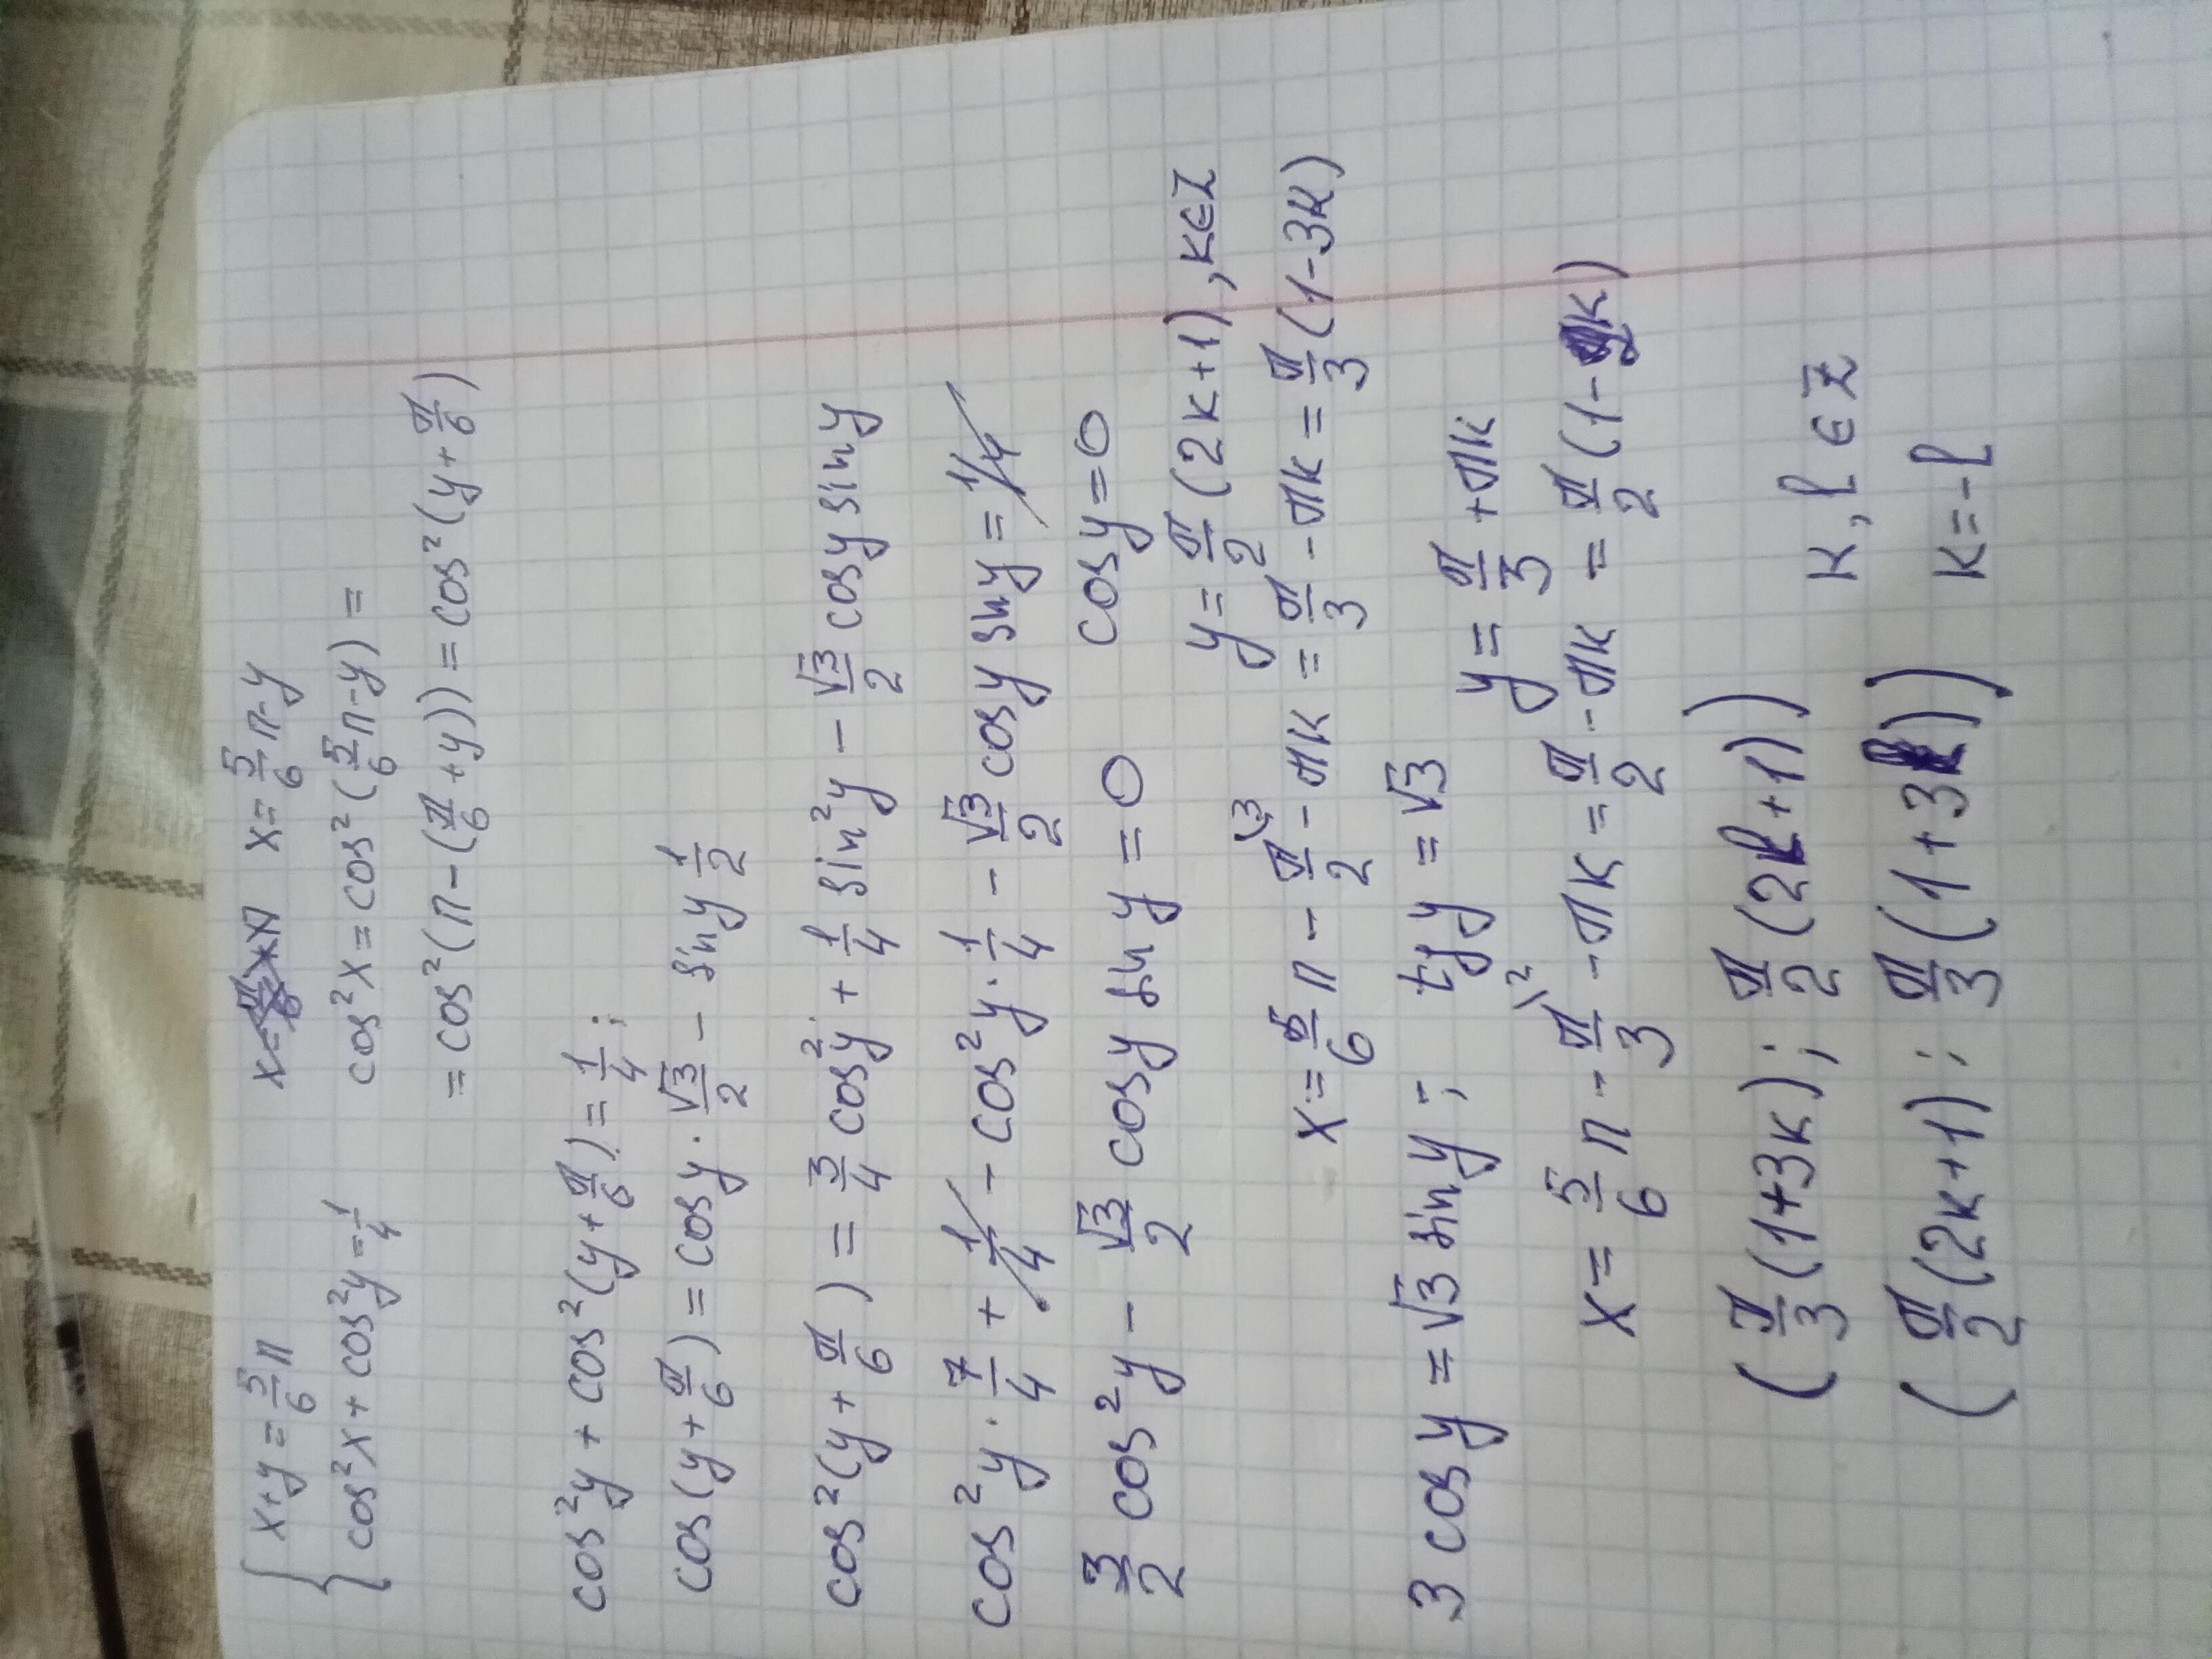 { x+y = 5/6 π   x = 5/6 π - y
{ cos²x + cos²y = 1/4   cos²x = cos²(5/6 π - y) =
= cos²(π - (π/6 + y)) = cos²(y + π/6)
cos²y + cos²(y + π/6) = 1/4 ;
cos(y + π/6) = cos y · √3/2 - sin y 1/2
cos²(y + π/6) = 3/4 cos²y + 1/4 sin²y - √3/2 cos y sin y
cos²y · 7/4 + 1/4 - cos²y · 1/4 - √3/2 cos y sin y = 1/4
3/2 cos²y - √3/2 cos y sin y = 0   cos y = 0
y = π/2 (2k+1), k∈Z
x = 5/6 π - π/2 \3 - πk = π/3 - πk = π/3 (1-3k)
3 cos y = √3 sin y ;   tg y = √3   y = π/3 + πk
x = 5/6 π - π/3 \2 - πk = π/2 - πk = π/2 (1-2k)
(π/3 (1+3k) ; π/2 (2l+1))   k, l ∈ Z
(π/2 (2k+1) ; π/3 (1+3l))   k = -l